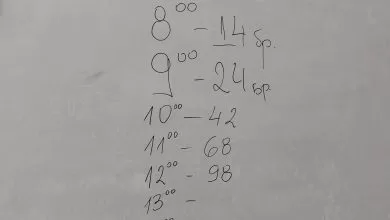 8⁰⁰ - 14 бр.
9⁰⁰ - 24 бр.
10⁰⁰ - 42
11⁰⁰ - 68
12⁰⁰ - 98
13⁰⁰ -